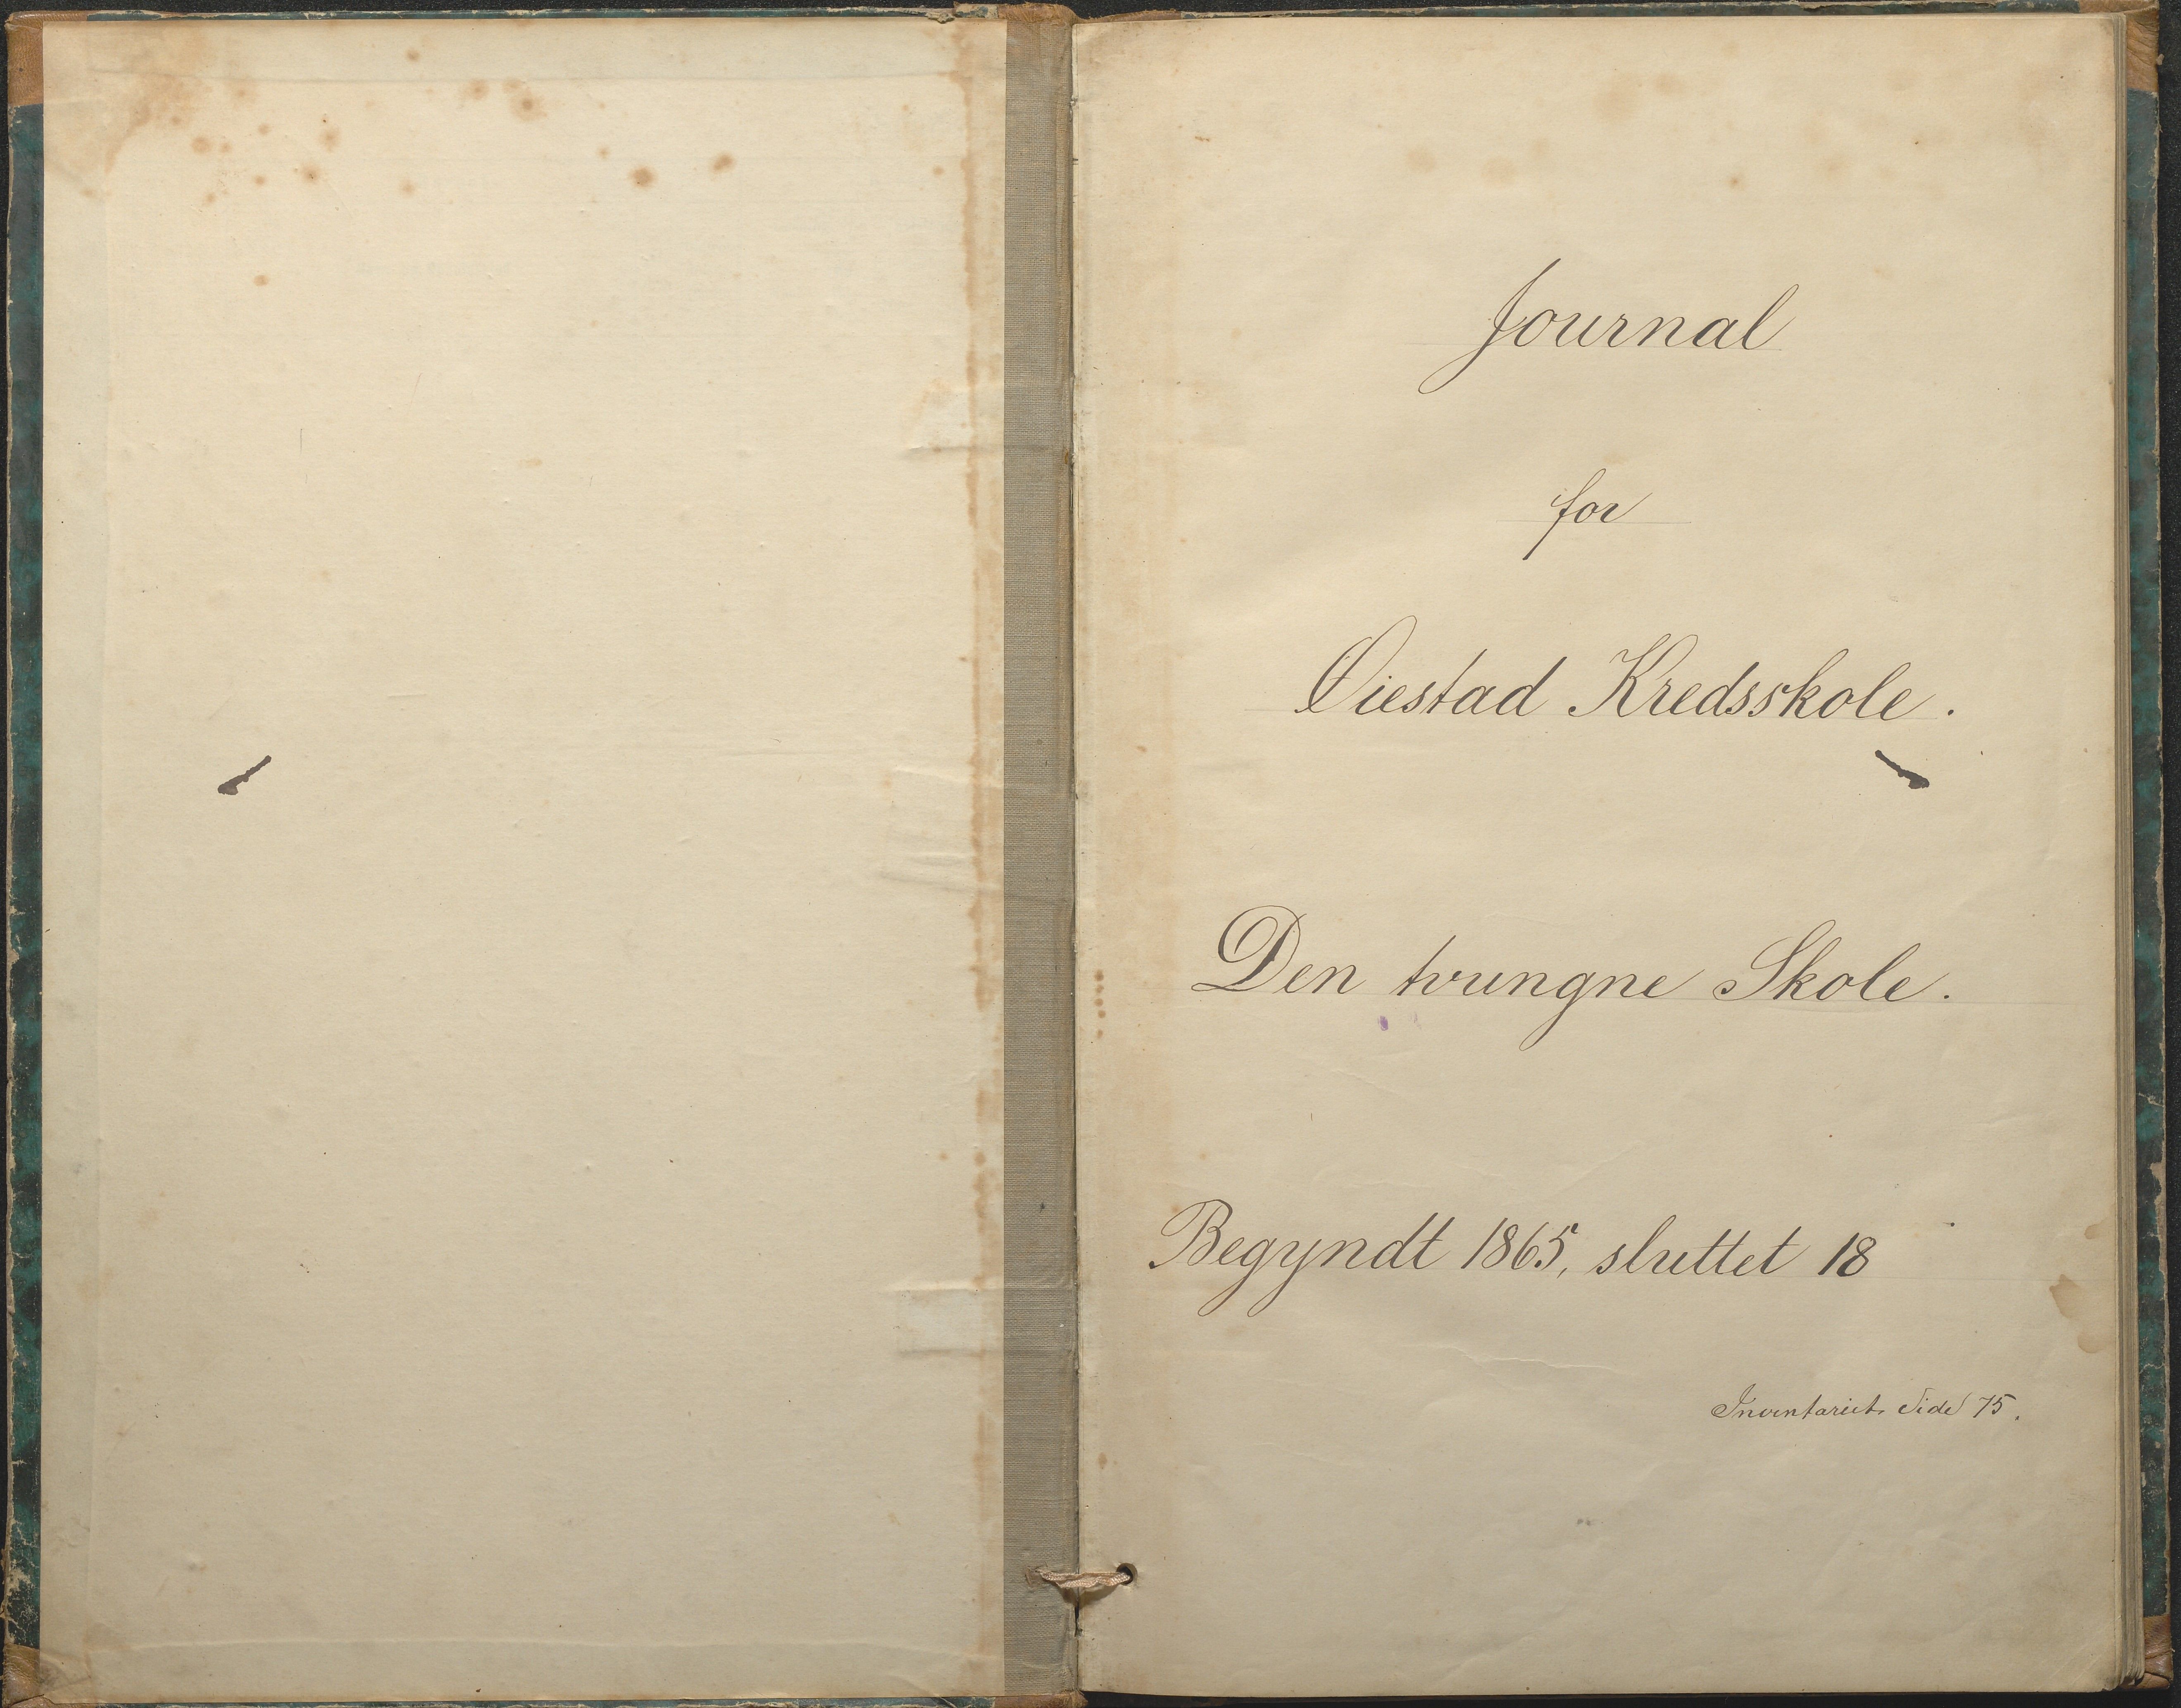 Journal
for
Øiestad Kredsskole.
Den tvungne Skole.
Begyndt 1865, sluttet 18
Inventariet Side 75.